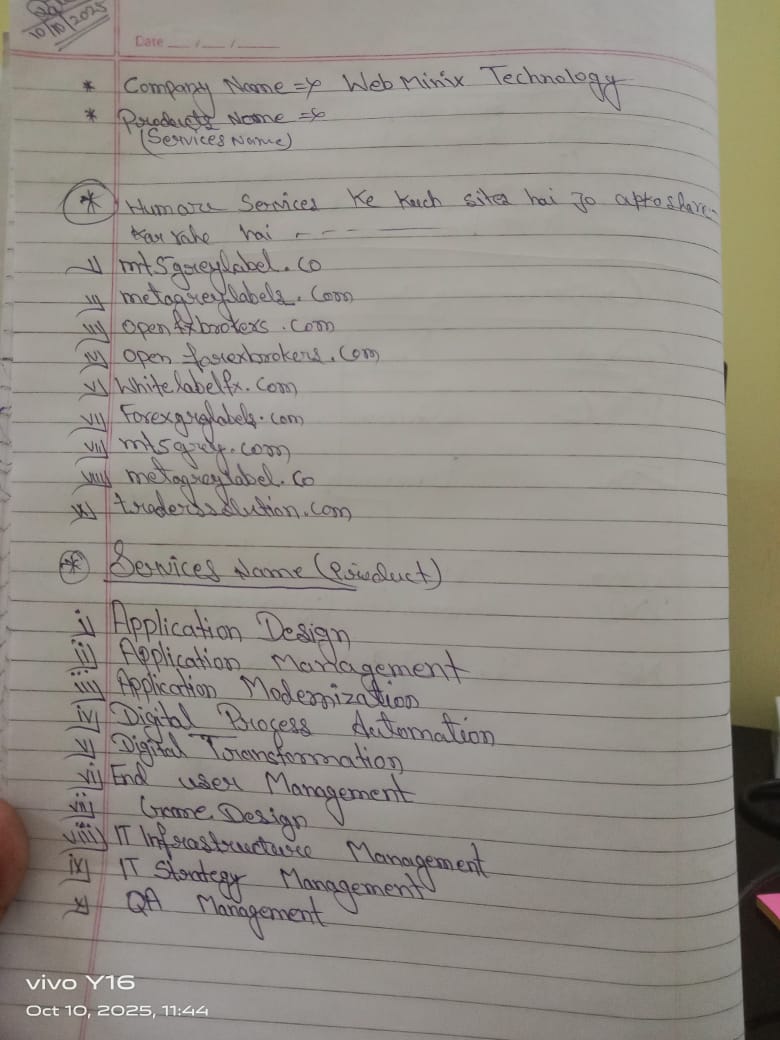 10/10/2025
Date __/__/____
* Company Name => Web Minix Technology
* Products Name =>
(Services Name)
* Humare Services Ke Kuch sites hai Jo apko share
kar rahe hai - - - ——
i) mt5greylabel.co
ii) metagreylabels.com
iii) openfxbrokers.com
iv) open forexbrokers.com
v) Whitelabelfx.com
vi) Forexgreylabels.com
vii) mt5grey.com
viii) metagreylabel.co
ix) traderssolution.com
* Services Name (Product)
i) Application Design
ii) Application Management
iii) Application Modernization
iv) Digital Process Automation
v) Digital Transformation
vi) End user Management
vii) Game Design
viii) IT Infrastructure Management
ix) IT Strategy Management
x) QA Management
vivo Y16
Oct 10, 2025, 11:44